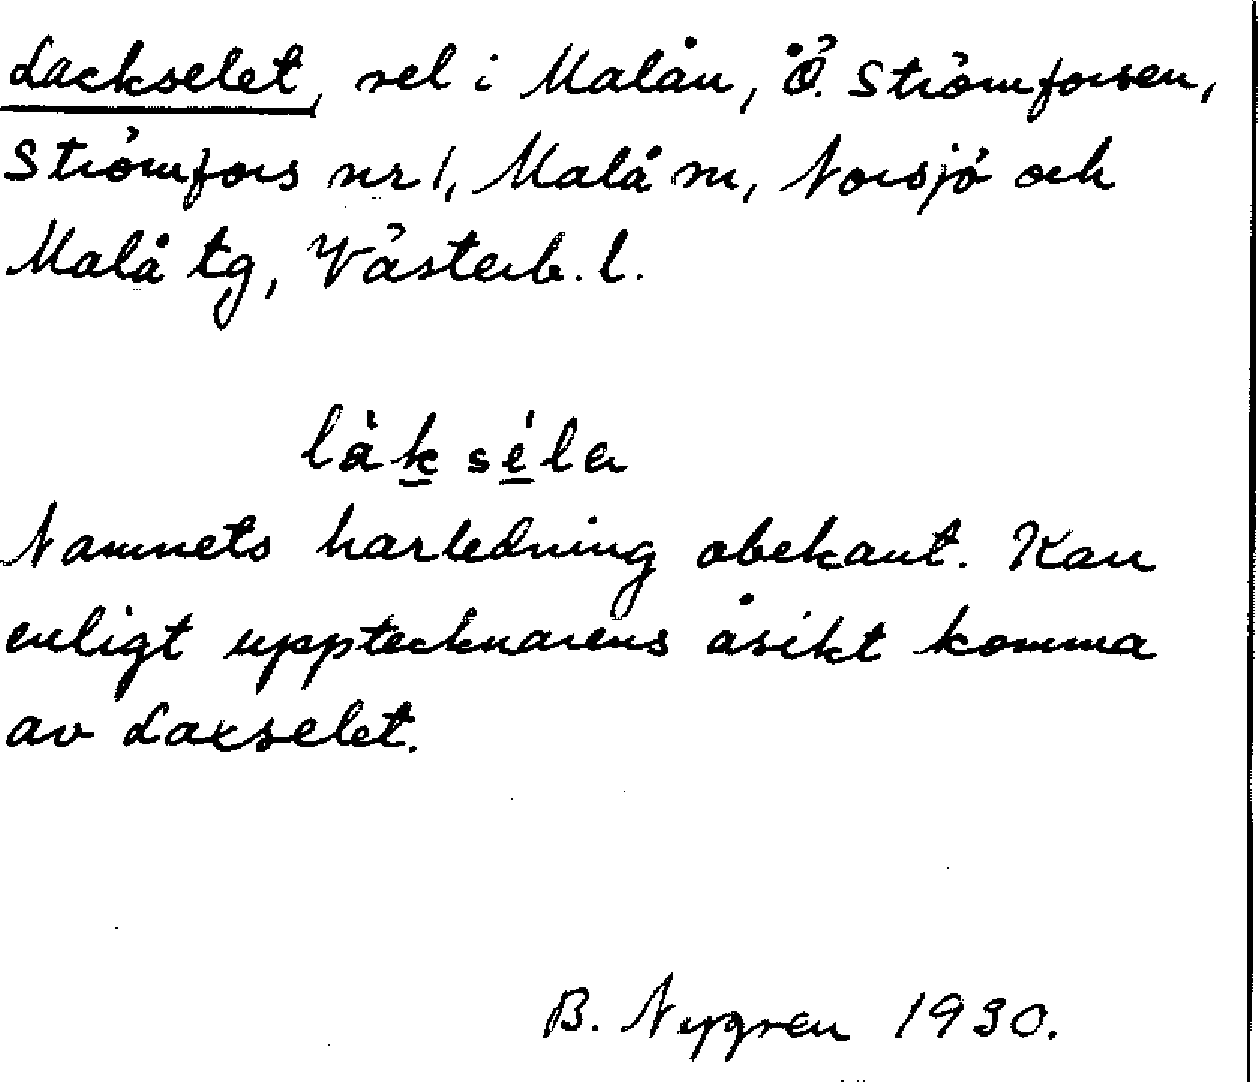 Lackselet, sel i Malån, Ö. Strömforsen,
Strömfors nr 1, Malå sn, Norsjö och
Malå tg, Västerb. l.
làksélą
Namnets härledning obekant. Kan
enligt upptecknarens åsikt komma
av Laxselet.
B. Nygren 1930.